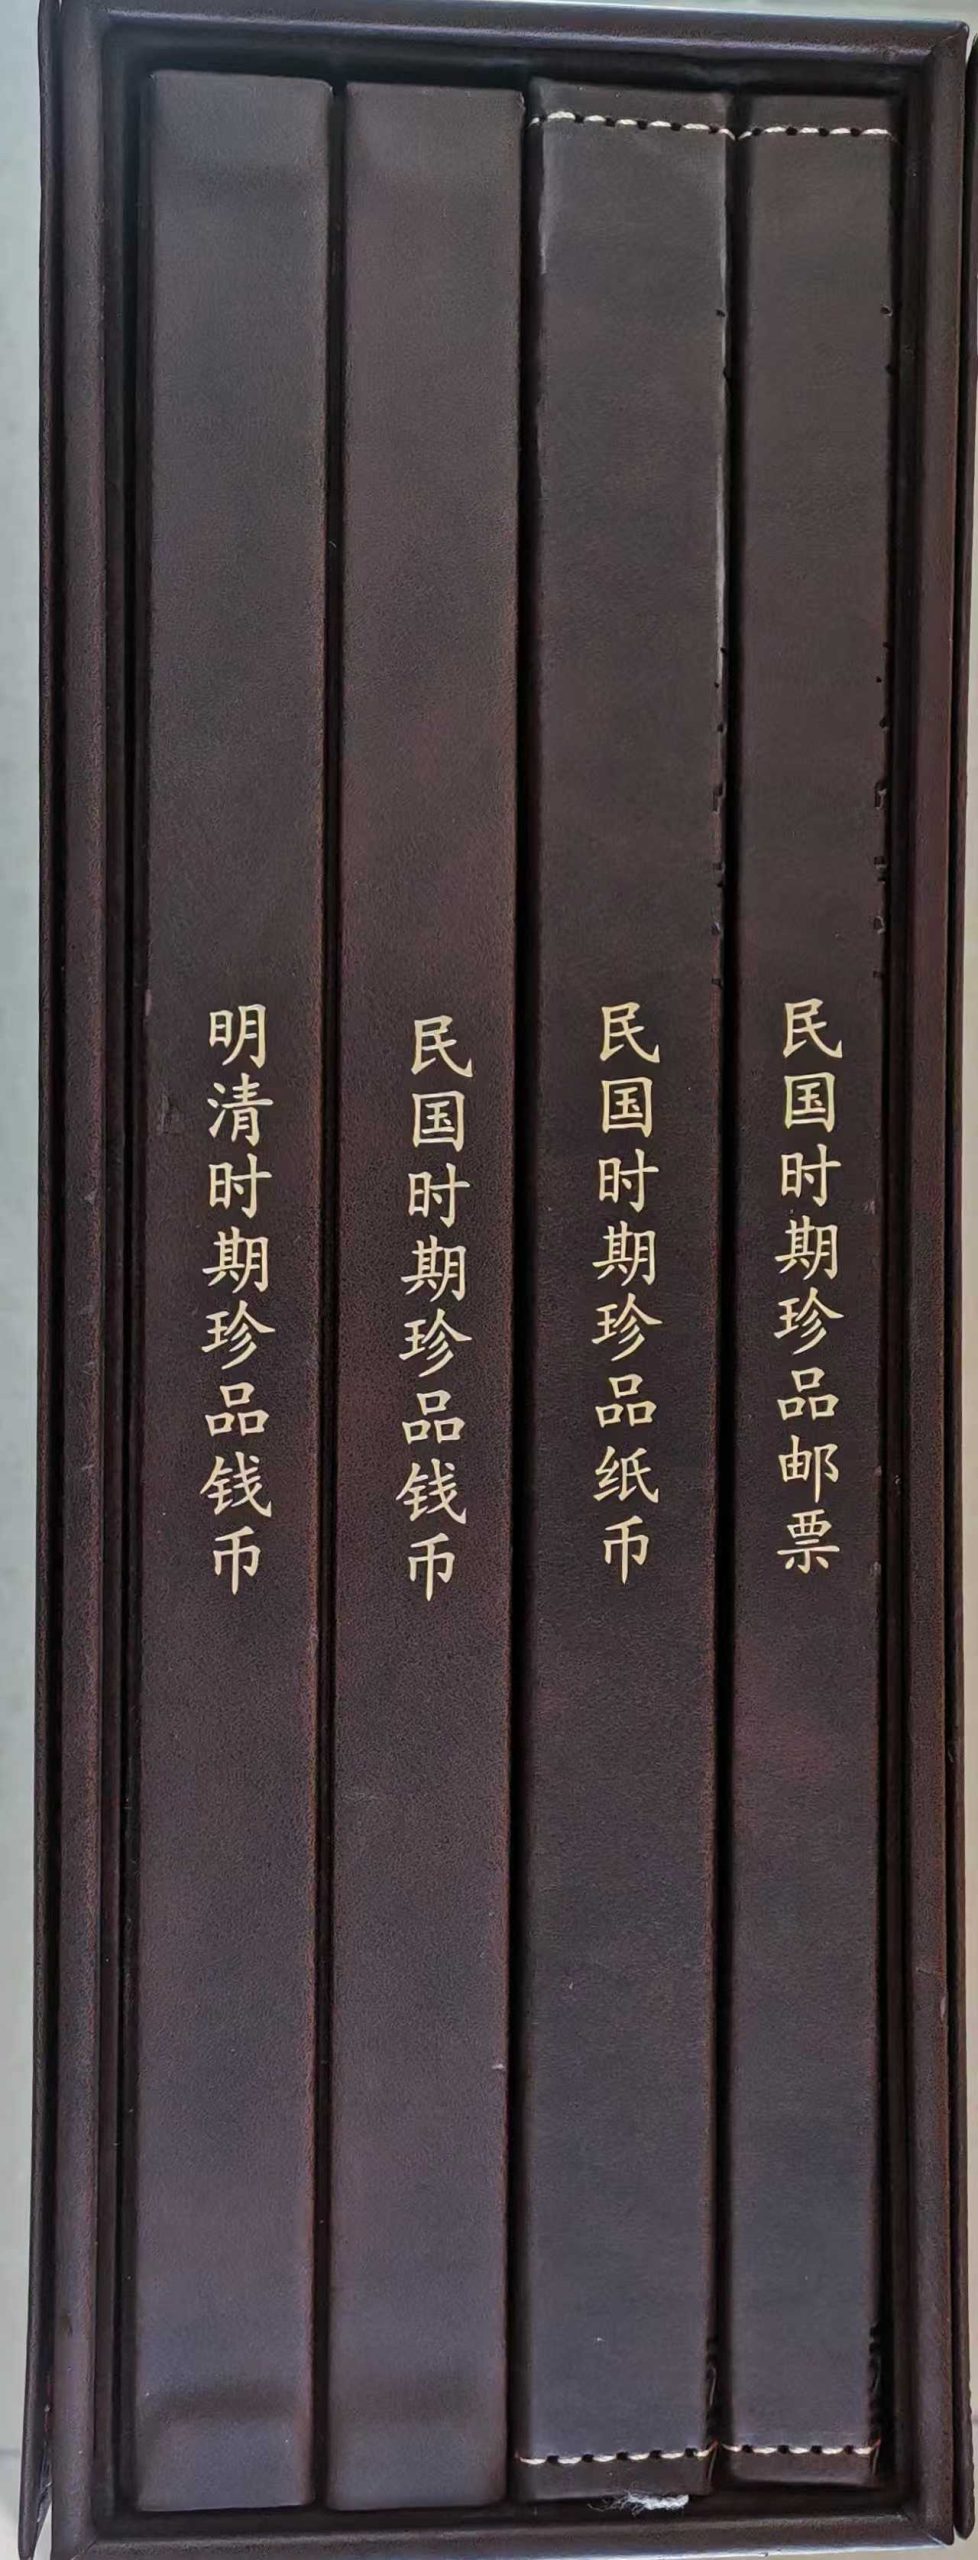 明清时期珍品钱币
民国时期珍品钱币
民国时期珍品纸币
民国时期珍品邮票